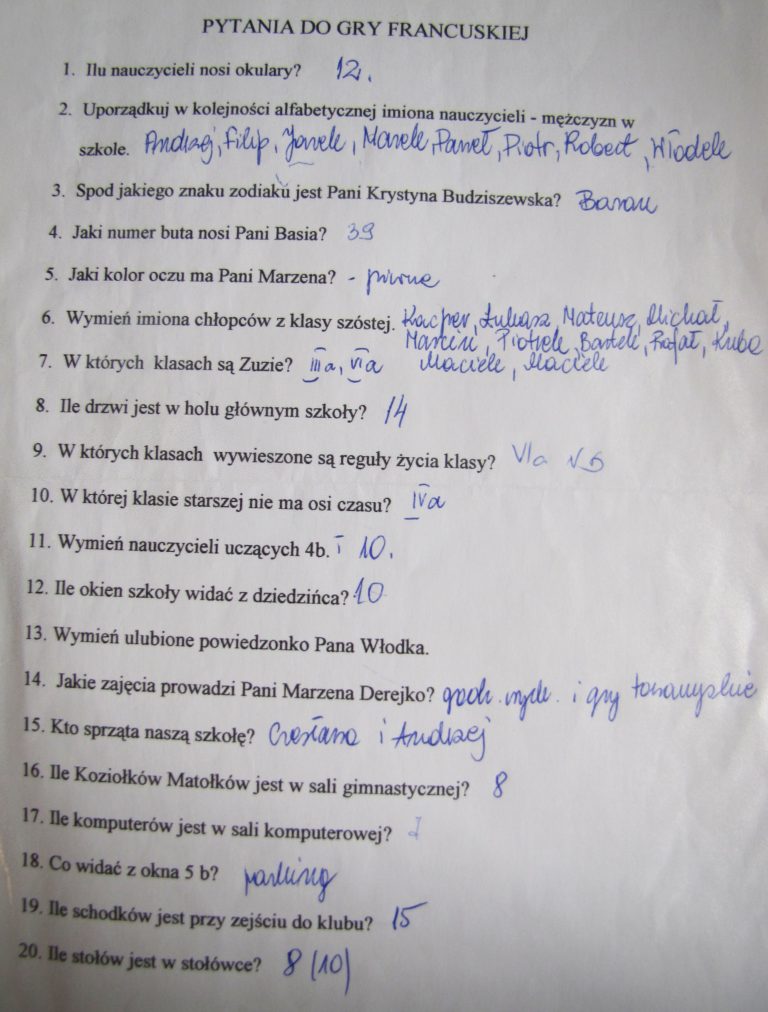 PYTANIA DO GRY FRANCUSKIEJ
1. Ilu nauczycieli nosi okulary? 12.
2. Uporządkuj w kolejności alfabetycznej imiona nauczycieli - mężczyzn w
szkole. Andrzej, Filip, Jarek, Marek, Paweł, Piotr, Robert, Włodek
3. Spod jakiego znaku zodiaku jest Pani Krystyna Budziszewska? Baran
4. Jaki numer buta nosi Pani Basia? 39
5. Jaki kolor oczu ma Pani Marzena? - piwne
6. Wymień imiona chłopców z klasy szóstej. Kacper, Łukasz, Mateusz, Michał,
Marcin, Piotrek, Bartek, Rafał, Kuba
7. W których klasach są Zuzie? IIIa, VIa Maciek, Maciek
8. Ile drzwi jest w holu głównym szkoły? 14
9. W których klasach wywieszone są reguły życia klasy? VIa V b
10. W której klasie starszej nie ma osi czasu? IVa
11. Wymień nauczycieli uczących 4b. 10.
12. Ile okien szkoły widać z dziedzińca? 10
13. Wymień ulubione powiedzonko Pana Włodka.
14. Jakie zajęcia prowadzi Pani Marzena Derejko? godz. wych. i gry towarzyskie
15. Kto sprząta naszą szkołę? Czesława i Andrzej
16. Ile Koziołków Matołków jest w sali gimnastycznej? 8
17. Ile komputerów jest w sali komputerowej?
18. Co widać z okna 5 b? parking
19. Ile schodków jest przy zejściu do klubu? 15
20. Ile stołów jest w stołówce? 8 (10)